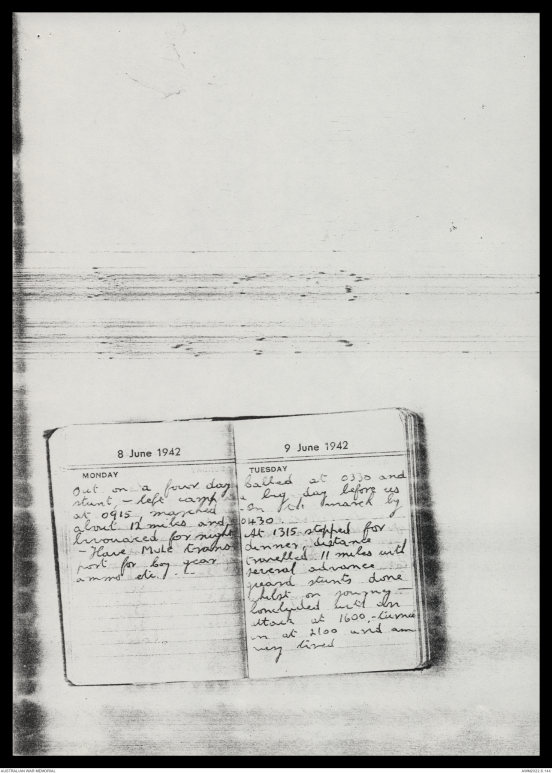 8 June 1942
MONDAY
Out on a four day
stunt - left camp
at 0915 marched
about 12 miles and
bivouaced for night
- Have Mule trans
port for big gear
ammo etc.
9 June 1942
TUESDAY
Called at 0330 and
a big day before us
- On the march by
0430
At 1315 stopped for
dinner, distance
travelled 11 miles with
several advance
guard stunts done
whilst on journey -
Concluded with an
attack at 1600, - turned
in at 2100 and am
very tired
AUSTRALIAN WAR MEMORIAL